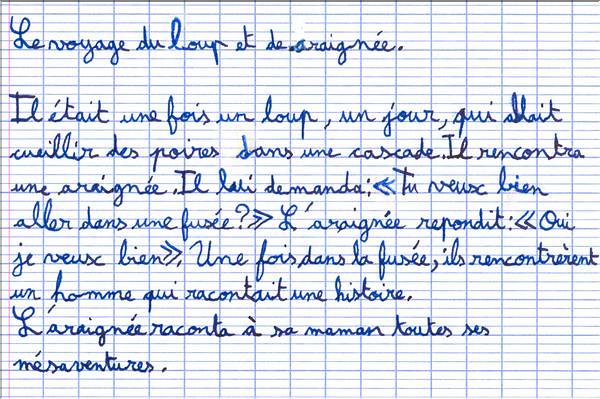 Le voyage du loup et de araignée.
Il était une fois un loup, un jour, qui allait
cueillir des poires dans une cascade. Il rencontra
une araignée. Il lui demanda: «Tu veux bien
aller dans une fusée?» L'araignée repondit: «Oui
je veux bien». Une fois dans la fusée, ils rencontrèrent
un homme qui racontait une histoire.
L'araignée raconta à sa maman toutes ses
mésaventures.